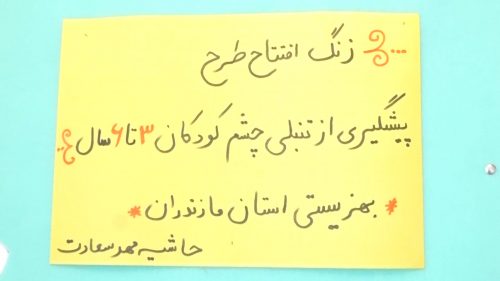 زنگ افتتاح طرح
پیشگیری از تنبلی چشم کودکان ۳ تا ۶ سال
* بهزیستی استان مازندران *
حاشیه مهد سعادت